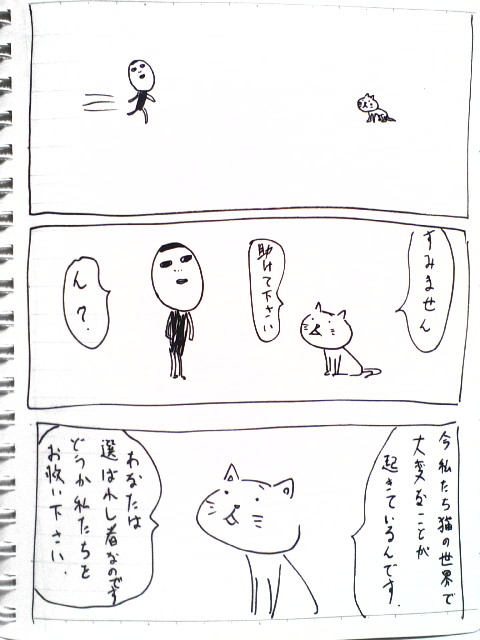 すみません
助けて下さい
ん?
今私たち猫の世界で
大変なことが
起きているんです.
あなたは
選ばれし者なのです
どうか私たちを
お救い下さい.